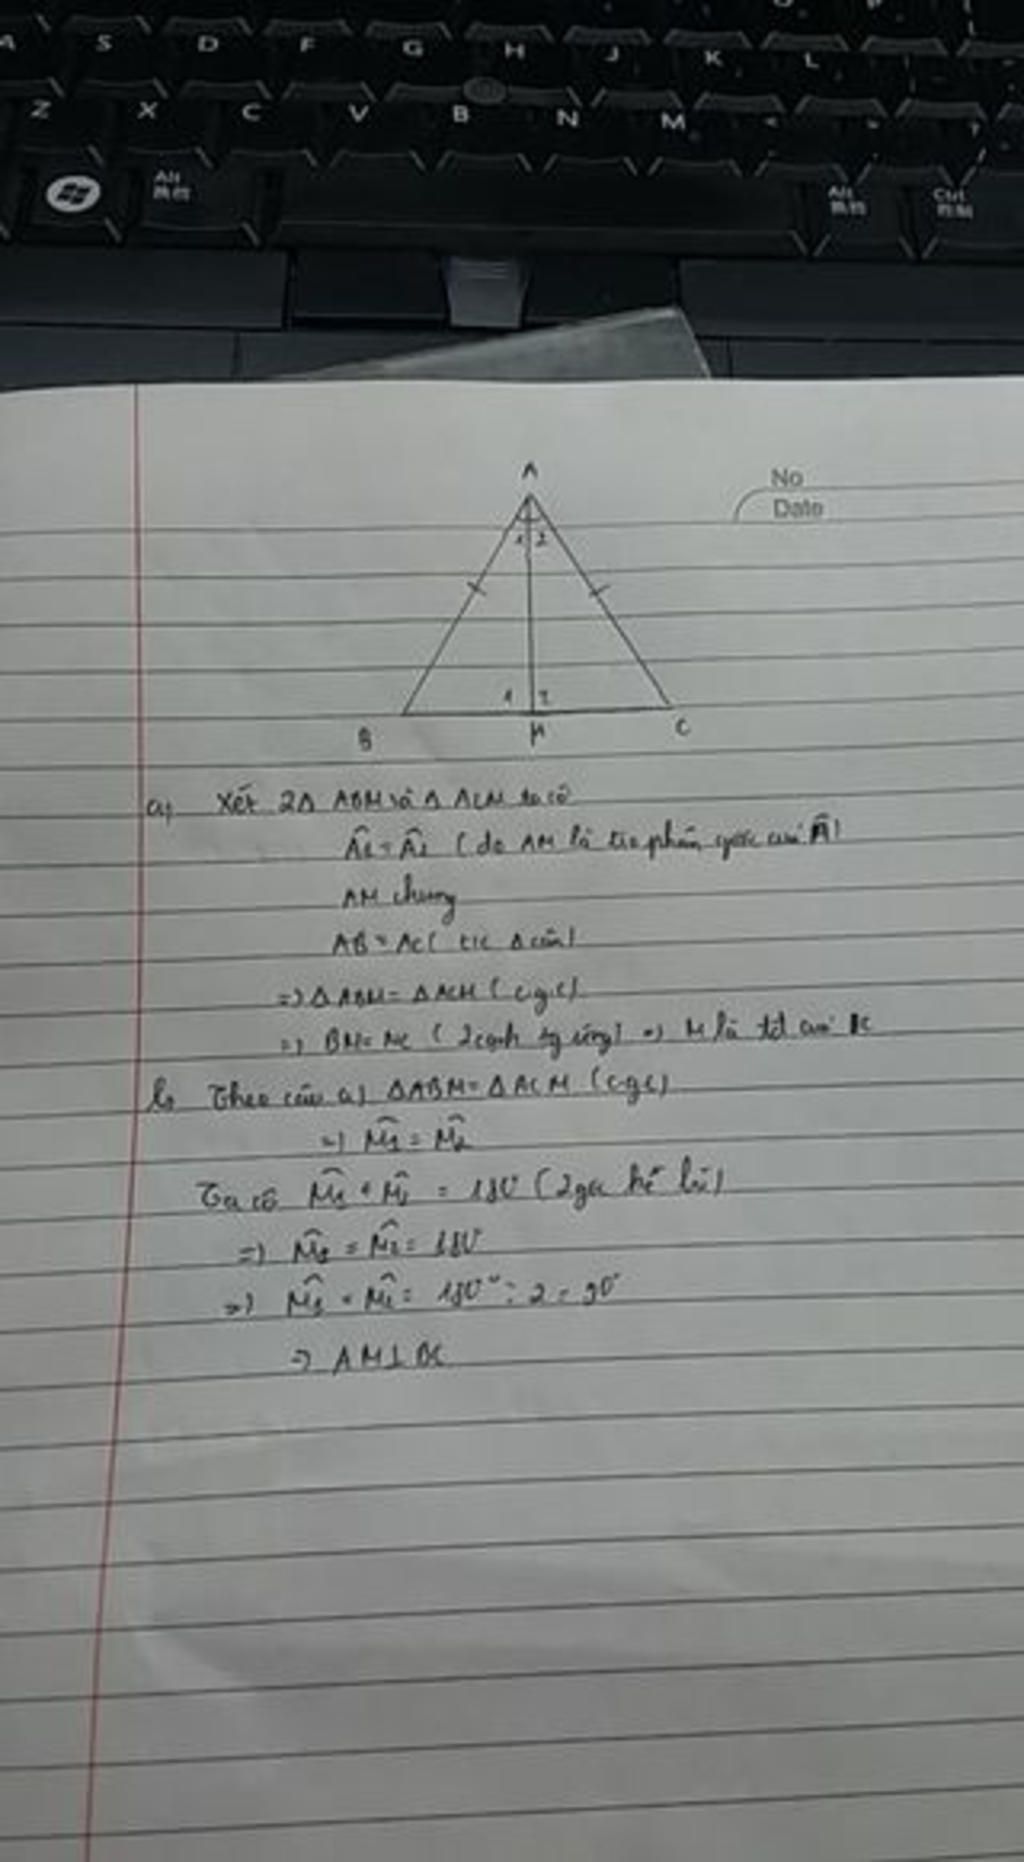 A S D F G H J K L
Z X C V B N M
Alt
Alt
Ctrl
No
Date
A
1 2
1 2
B M C
a, Xét 2Δ ABM và Δ ACM ta có
Â1 = Â2 (do AM là tia phân giác của Â)
AM chung
AB = AC ( t/c Δ cân)
=> Δ ABM = Δ ACM ( c.g.c)
=> BM = MC ( 2 cạnh tg ứng) => M là tđ của BC
b, Theo câu a) ΔABM = ΔACM (c.g.c)
=> M̂1 = M̂2
Ta có M̂1 + M̂2 = 180° (2 góc kề bù)
=> M̂1 = M̂2 = 180°
=> M̂1 = M̂2 = 180° : 2 = 90°
=> AM ⊥ BC